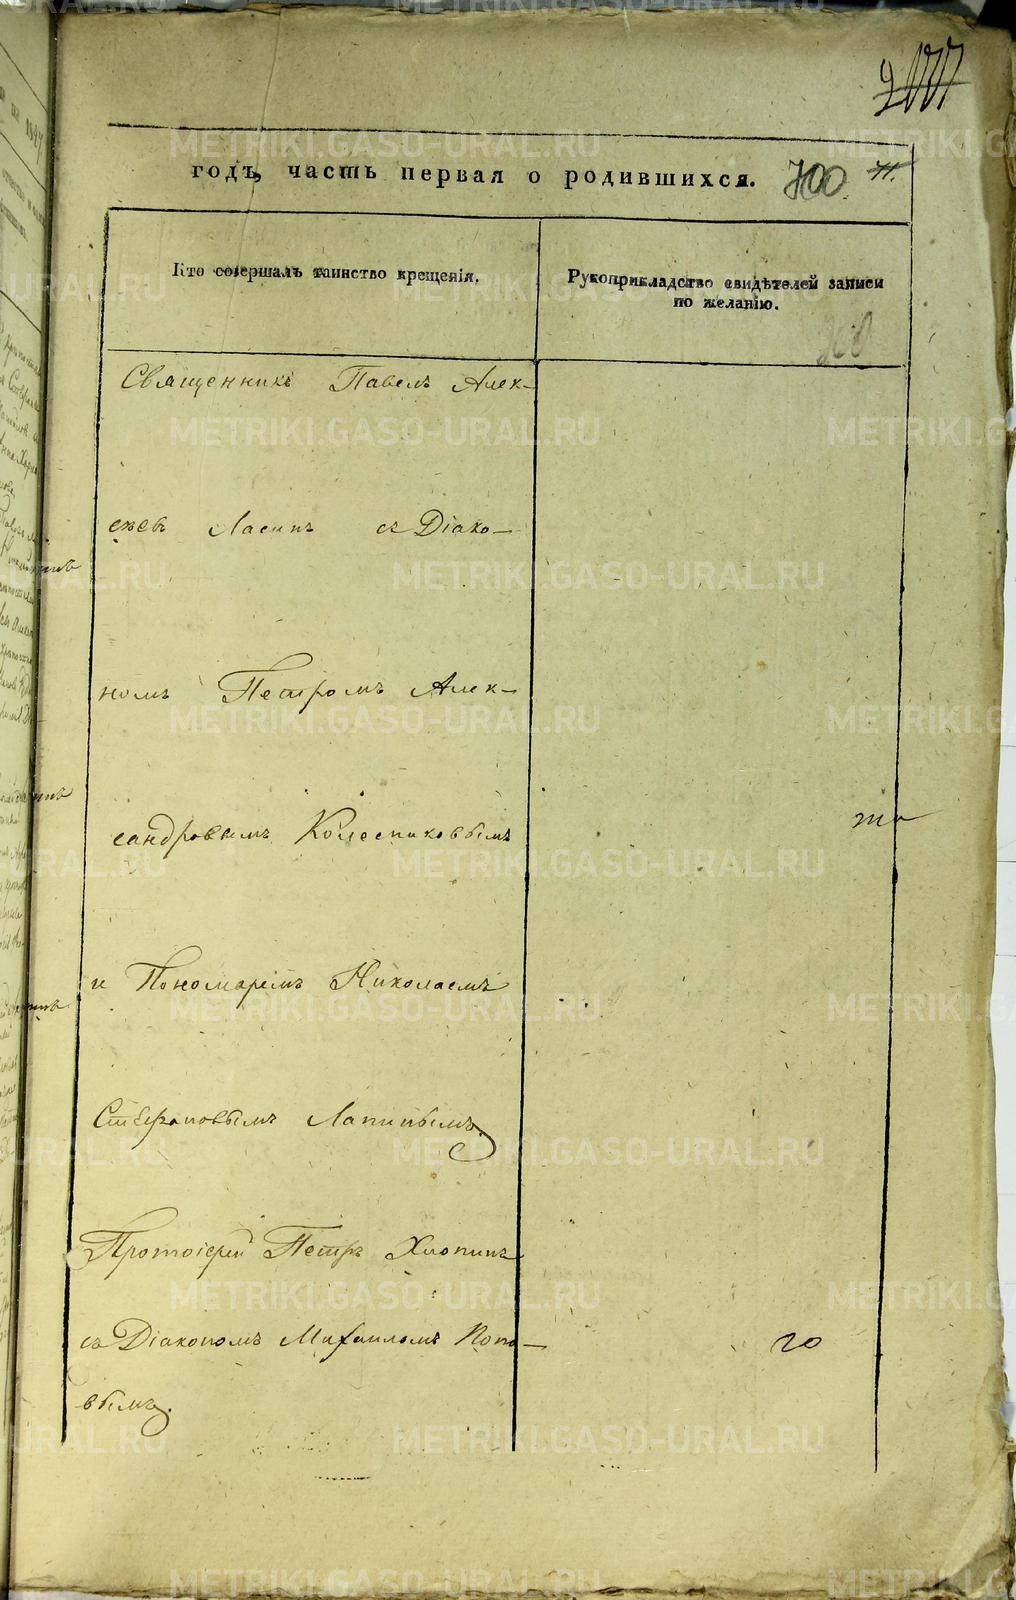 годъ, часть первая о родившихся. 700
Кто совершалъ таинство крещенія.
Рукоприкладство свидѣтелей записи
по желанію.
Священникъ Павелъ Алек-
сѣевъ Ласинъ съ Діако-
номъ Петромъ Алек-
сандровымъ Колесниковымъ
и Пономаремъ Николаемъ
Стефановымъ Лапинымъ.
Протоіерей Петръ Хлопинъ
съ Діакономъ Михаиломъ Попо-
вымъ.
го
METRIKI.GASO-URAL.RU